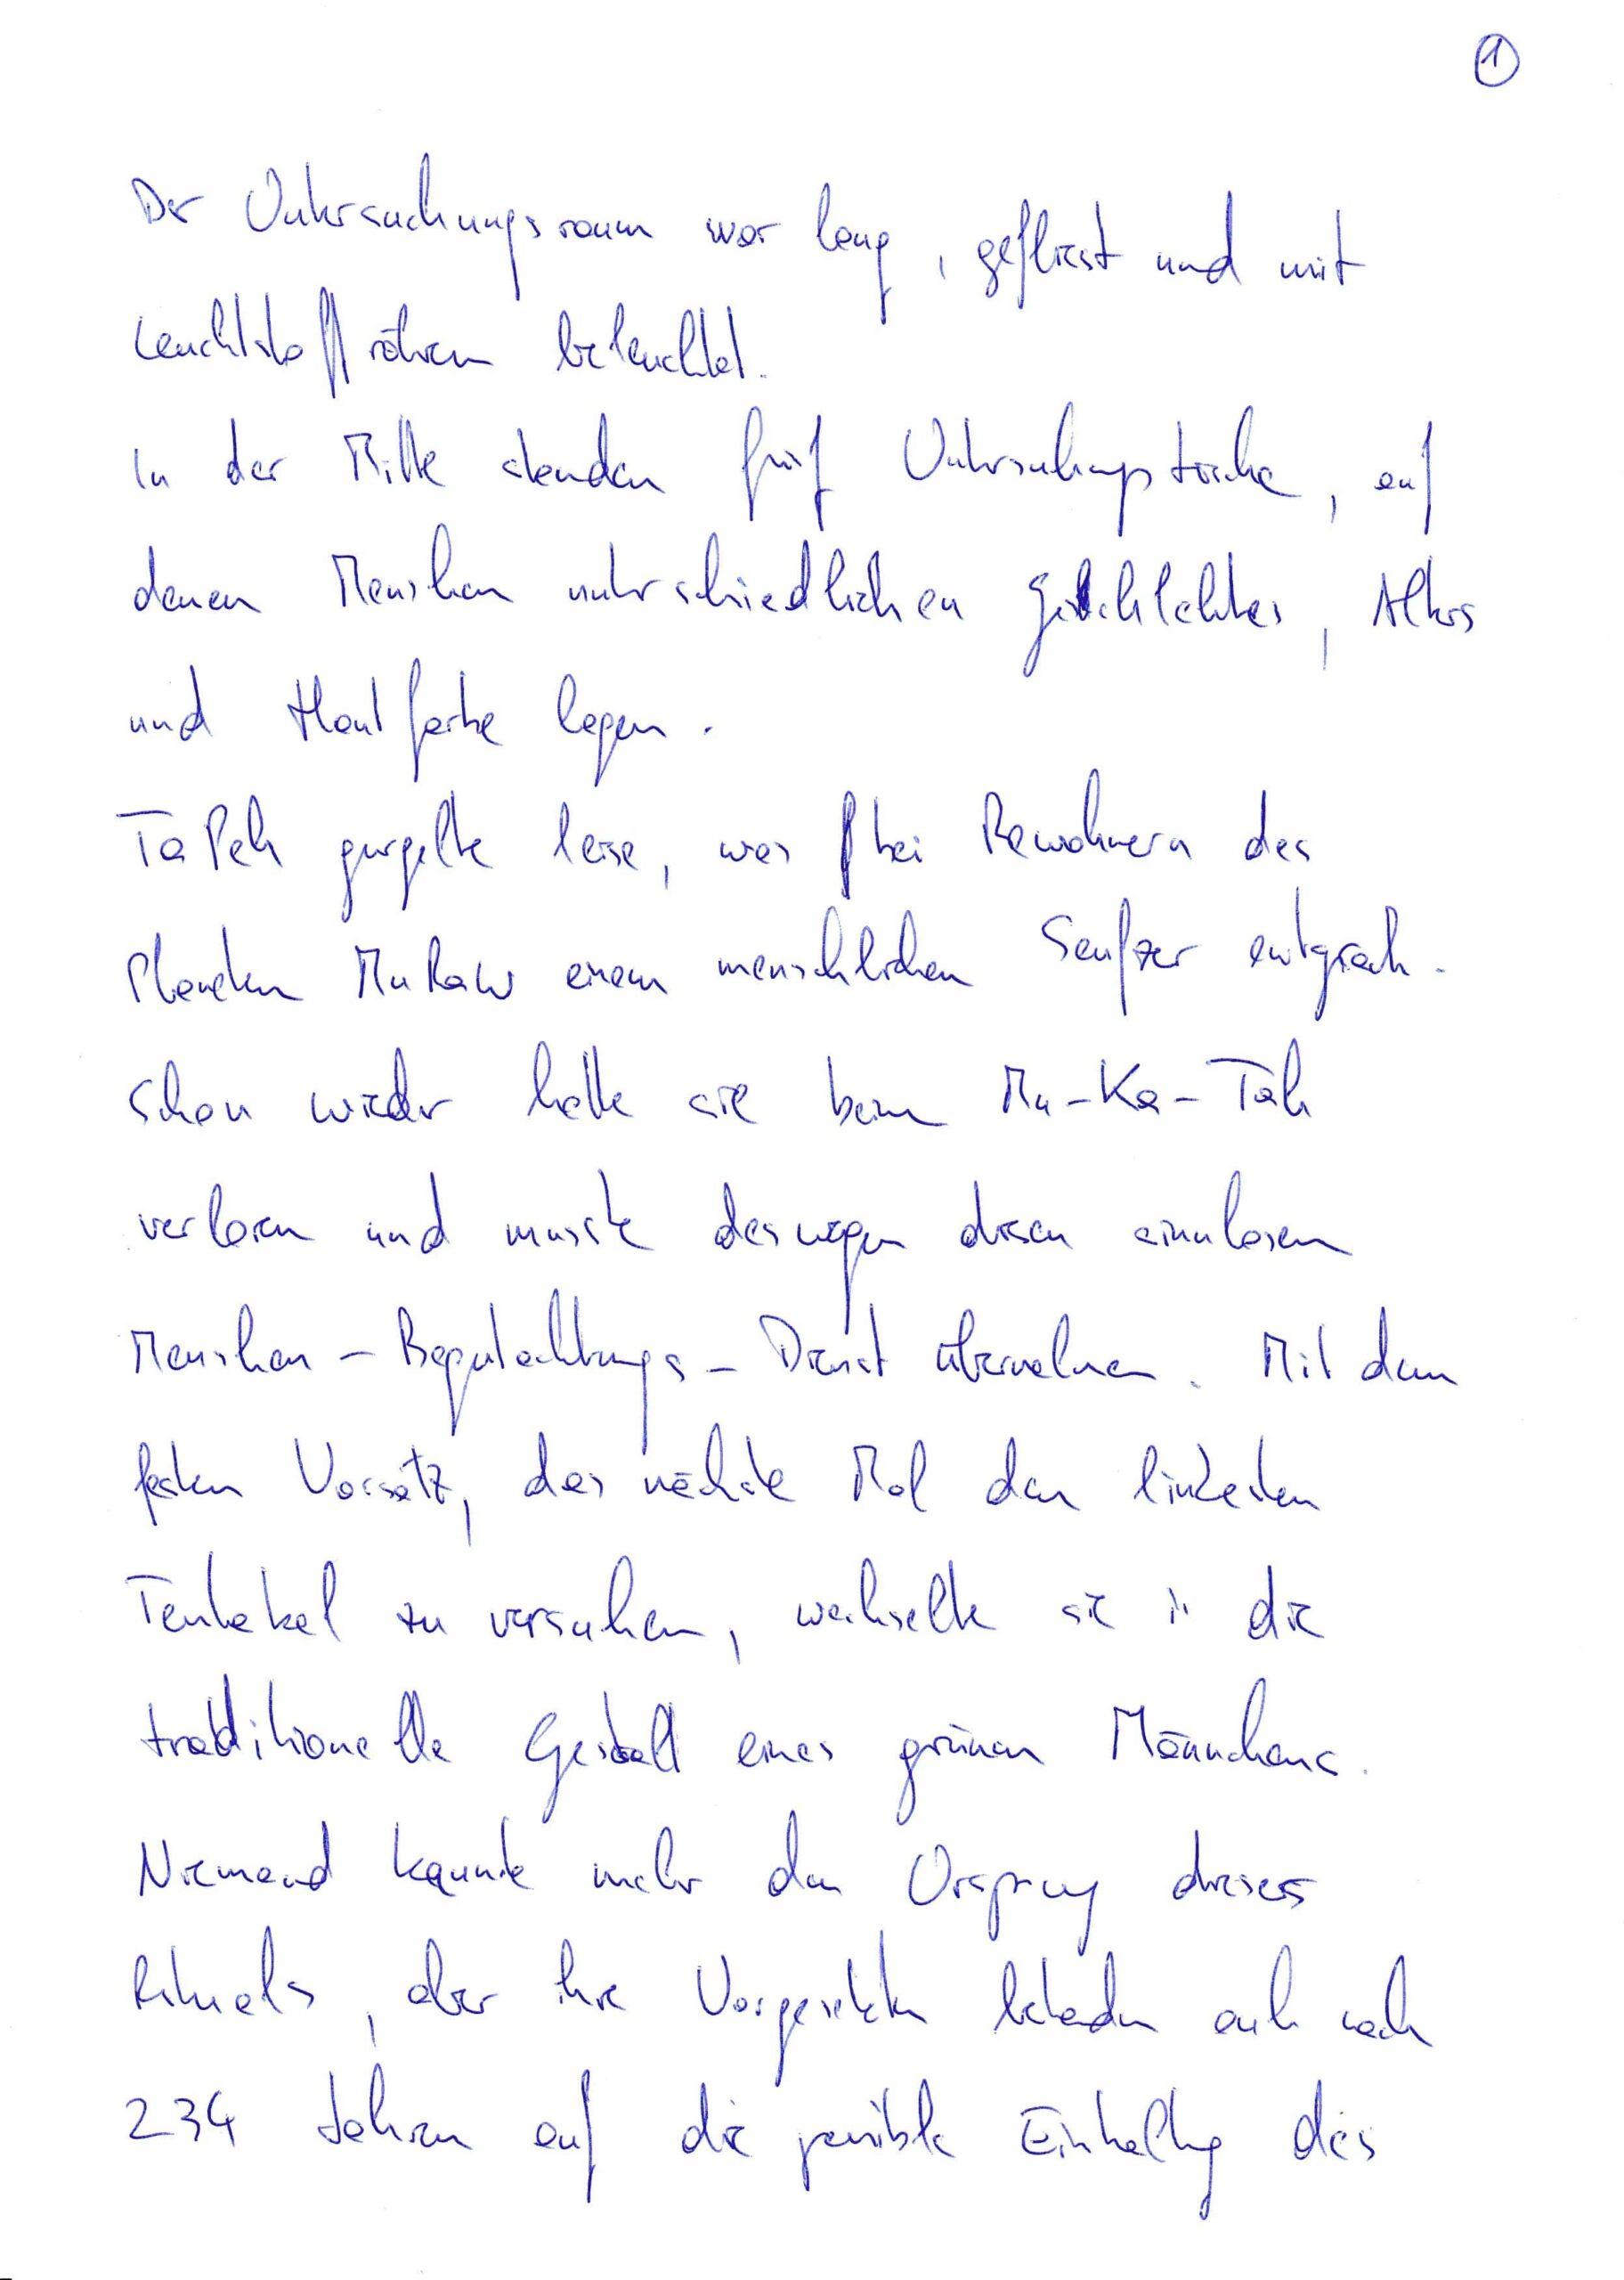 1
Der Untersuchungsraum war lang, gefliest und mit
Leuchtstoffröhren beleuchtet.
In der Mitte standen fünf Untersuchungstische, auf
denen Menschen unterschiedlichen Geschlechtes, Alters
und Hautfarbe lagen.
TaPeh gurgelte leise, was bei Bewohnern des
Planeten MuRaW einem menschlichen Seufzer entsprach.
Schon wieder hatte sie beim Mu-Ka-Tah
verloren und musste deswegen diesen sinnlosen
Menschen-Begutachtungs-Dienst übernehmen. Mit dem
festen Vorsatz, das nächste Mal den linkesten
Tentakel zu versuchen, wechselte sie in die
traditionelle Gestalt eines grünen Männchens.
Niemand kannte mehr den Ursprung dieses
Rituals, aber ihre Vorgesetzten bestanden auch nach
234 Jahren auf die penible Einhaltung des